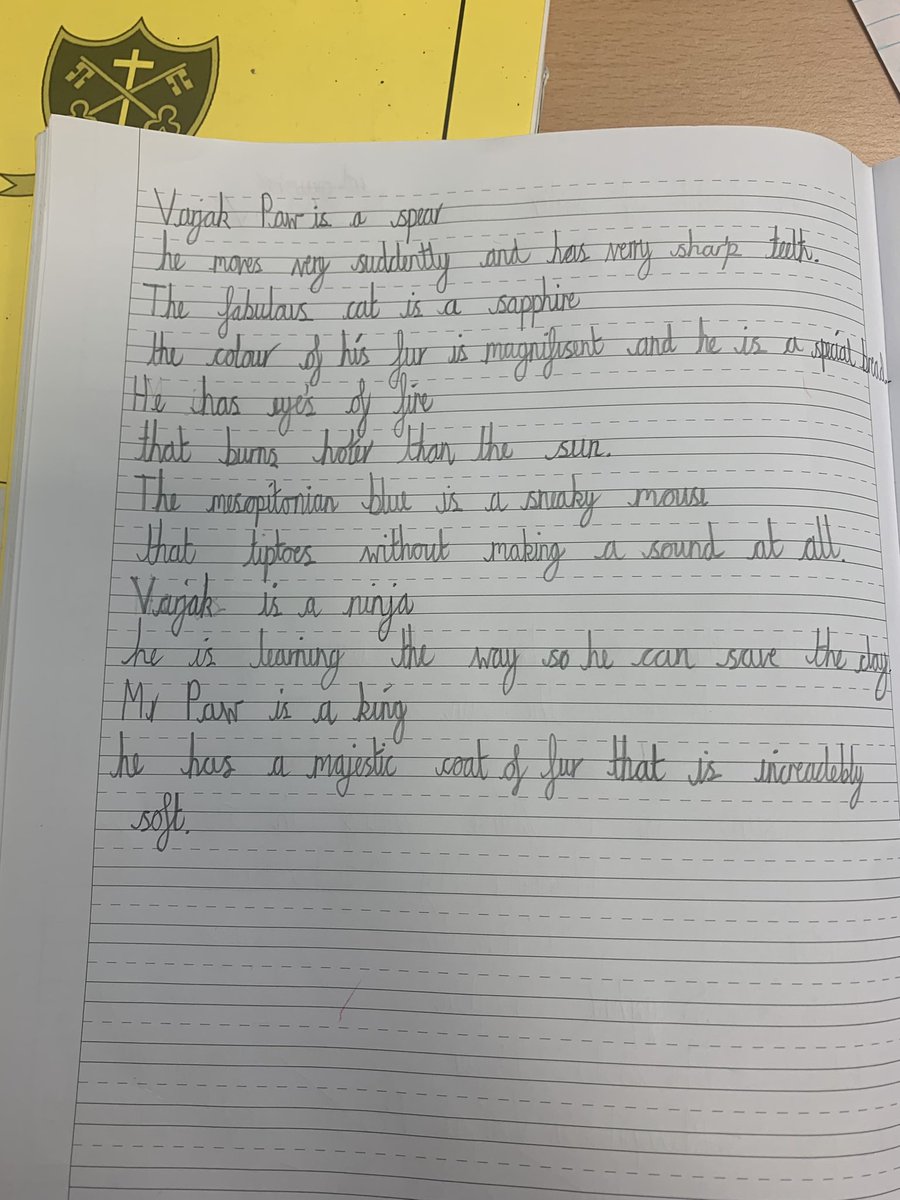 Varjak Paw is a spear
he moves very suddently and has verry sharp teeth.
The fabulous cat is a sapphire
the colour of his fur is magnifisent and he is a special bread.
He has eye's of fire
that burns hoter than the sun.
The mesopitonian blue is a sneaky mouse
that tiptoes without making a sound at all.
Varjak is a ninja
he is learning the way so he can save the day.
Mr Paw is a king
he has a majestic coat of fur that is increadebly
soft.